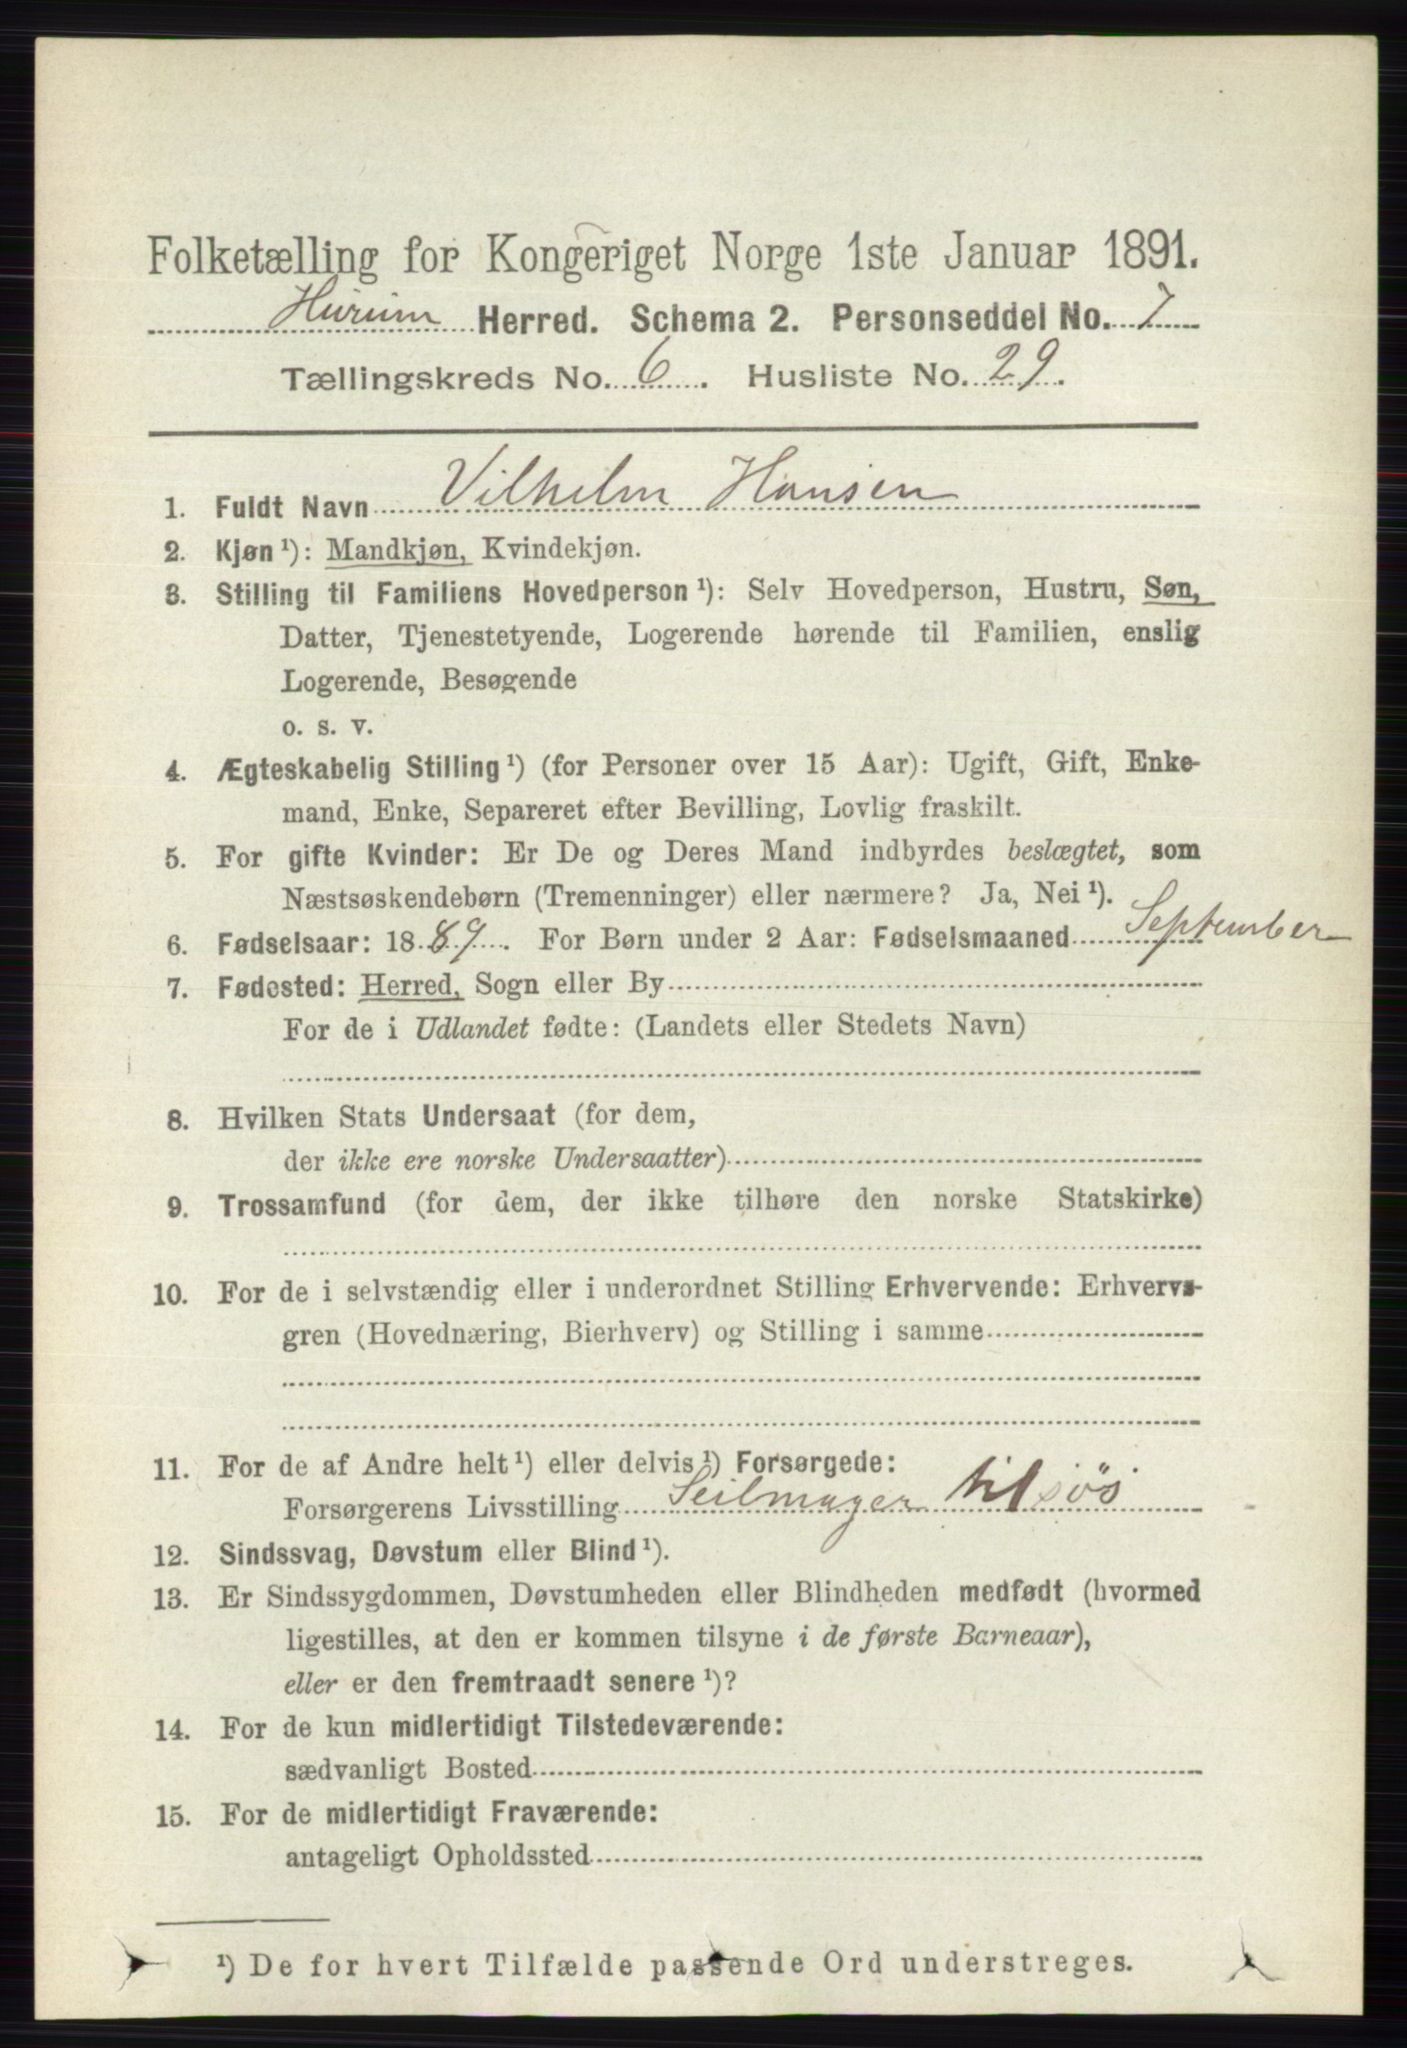 Folketælling for Kongeriget Norge 1ste Januar 1891.
Hurum Herred. Schema 2. Personseddel No. 7
Tællingskreds No. 6. Husliste No. 29.
1. Fuldt Navn Vilhelm Hansen
2. Kjøn ¹): Mandkjøn, Kvindekjøn.
3. Stilling til Familiens Hovedperson ¹): Selv Hovedperson, Hustru, Søn,
Datter, Tjenestetyende, Logerende hørende til Familien, enslig
Logerende, Besøgende
o. s. v.
4. Ægteskabelig Stilling ¹) (for Personer over 15 Aar): Ugift, Gift, Enke-
mand, Enke, Separeret efter Bevilling, Lovlig fraskilt.
5. For gifte Kvinder: Er De og Deres Mand indbyrdes beslægtet, som
Næstsøskendebørn (Tremenninger) eller nærmere? Ja, Nei ¹).
6. Fødselsaar: 1889. For Børn under 2 Aar: Fødselsmaaned September
7. Fødested: Herred, Sogn eller By
For de i Udlandet fødte: (Landets eller Stedets Navn)
8. Hvilken Stats Undersaat (for dem,
der ikke ere norske Undersaatter)
9. Trossamfund (for dem, der ikke tilhøre den norske Statskirke)
10. For de i selvstændig eller i underordnet Stilling Erhvervende: Erhvervs-
gren (Hovednæring, Bierhverv) og Stilling i samme
11. For de af Andre helt ¹) eller delvis ¹) Forsørgede:
Forsørgerens Livsstilling Seilmager tilsøs
12. Sindssvag, Døvstum eller Blind ¹).
13. Er Sindssygdommen, Døvstumheden eller Blindheden medfødt (hvormed
ligestilles, at den er kommen tilsyne i de første Barneaar),
eller er den fremtraadt senere ¹)?
14. For de kun midlertidigt Tilstedeværende:
sædvanligt Bosted
15. For de midlertidigt Fraværende:
antageligt Opholdssted
¹) De for hvert Tilfælde passende Ord understreges.